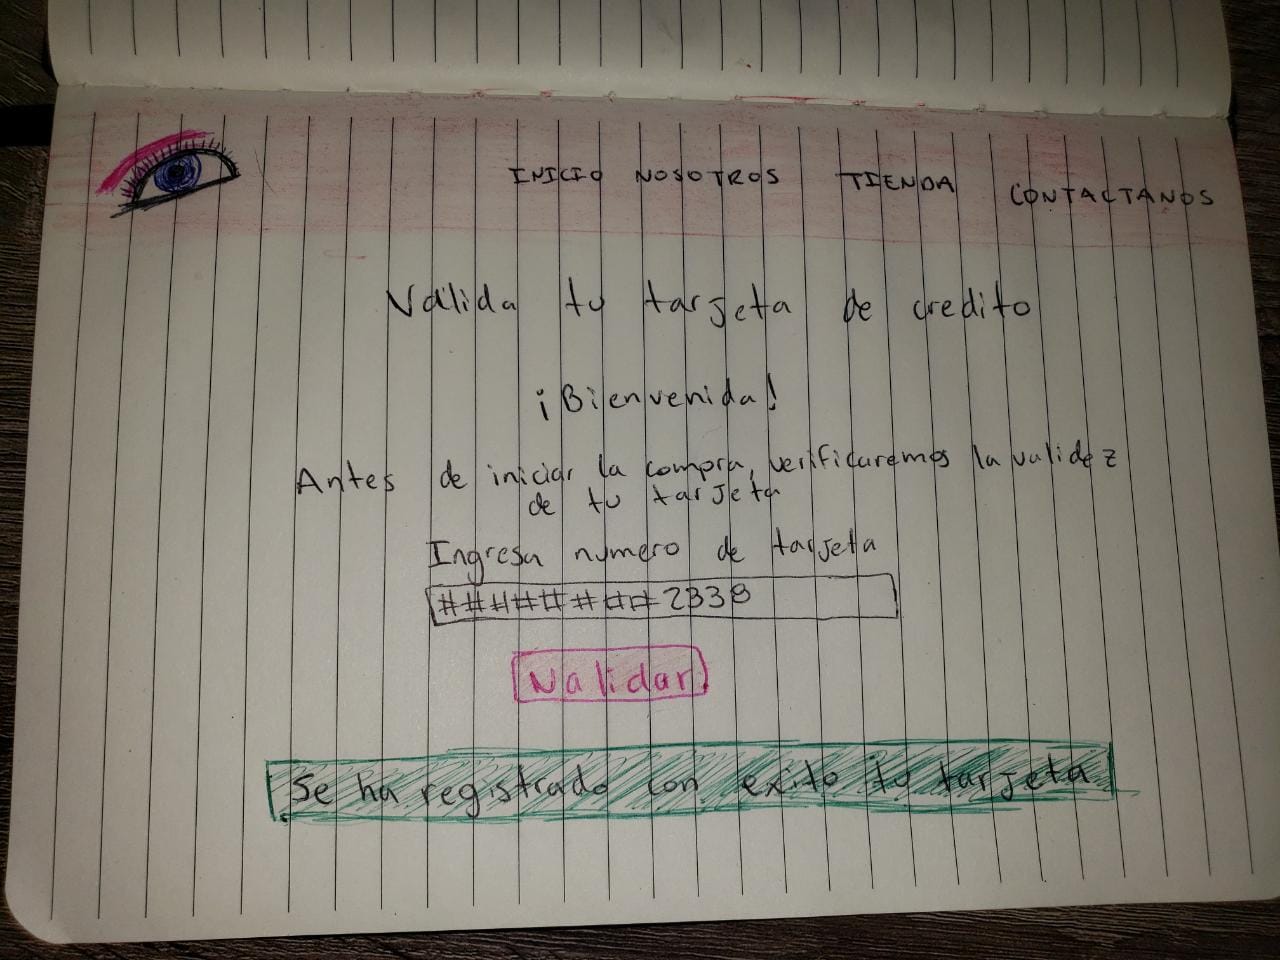 INICIO NOSOTROS TIENDA CONTACTANOS
Valida tu tarjeta de credito
¡Bienvenida!
Antes de iniciar la compra, verificaremos la validez
de tu tarjeta
Ingresa numero de tarjeta
#########2338
Validar
Se ha registrado con exito tu tarjeta